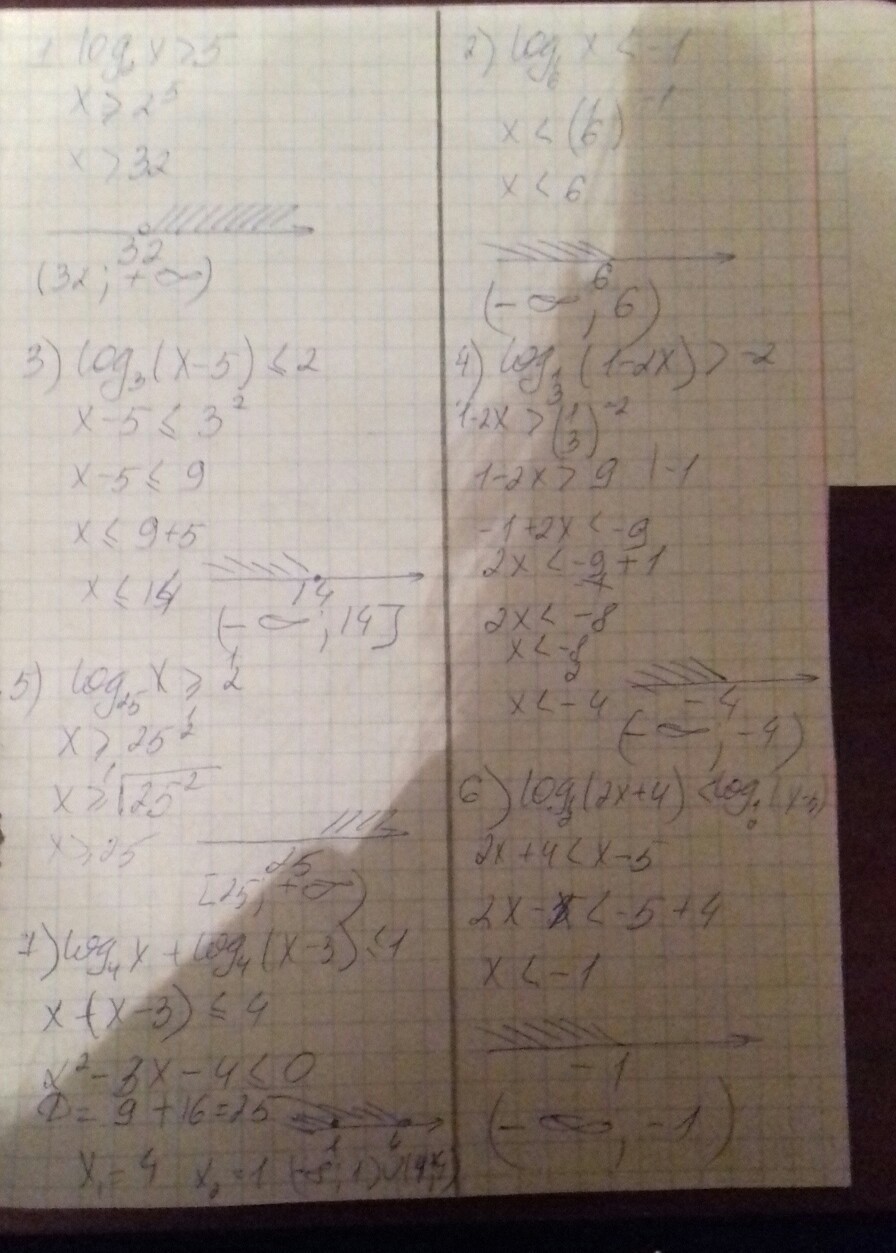 1 log₂ x > 5
x > 2⁵
x > 32
32
(32; +∞)
2) log_{1/6} x < -1
x < (1/6)⁻¹
x < 6
6
(-∞; 6)
3) log₃(x-5) ≤ 2
x-5 ≤ 3²
x-5 ≤ 9
x ≤ 9+5
x ≤ 14
14
(-∞; 14]
4) log_{1/3}(1-2x) > -2
1-2x > (1/3)⁻²
1-2x > 9 | -1
-1+2x < -9
2x < -9+1
2x < -8
x < -8/2
x < -4
-4
(-∞; -4)
5) log₂₅ x ≥ 1/2
x ≥ 25^{1/2}
x ≥ √25²
x ≥ 25
25
[25; +∞)
6) log (2x+4) < log
2x+4 < x-5
2x-x < -5+4
x < -1
-1
(-∞; -1)
7) log₄ x + log₄(x-3) ≤ 1
x·(x-3) ≤ 4
x²-3x-4 ≤ 0
D = 9+16=25
1 4
x₁ = 4 x₂ = 1